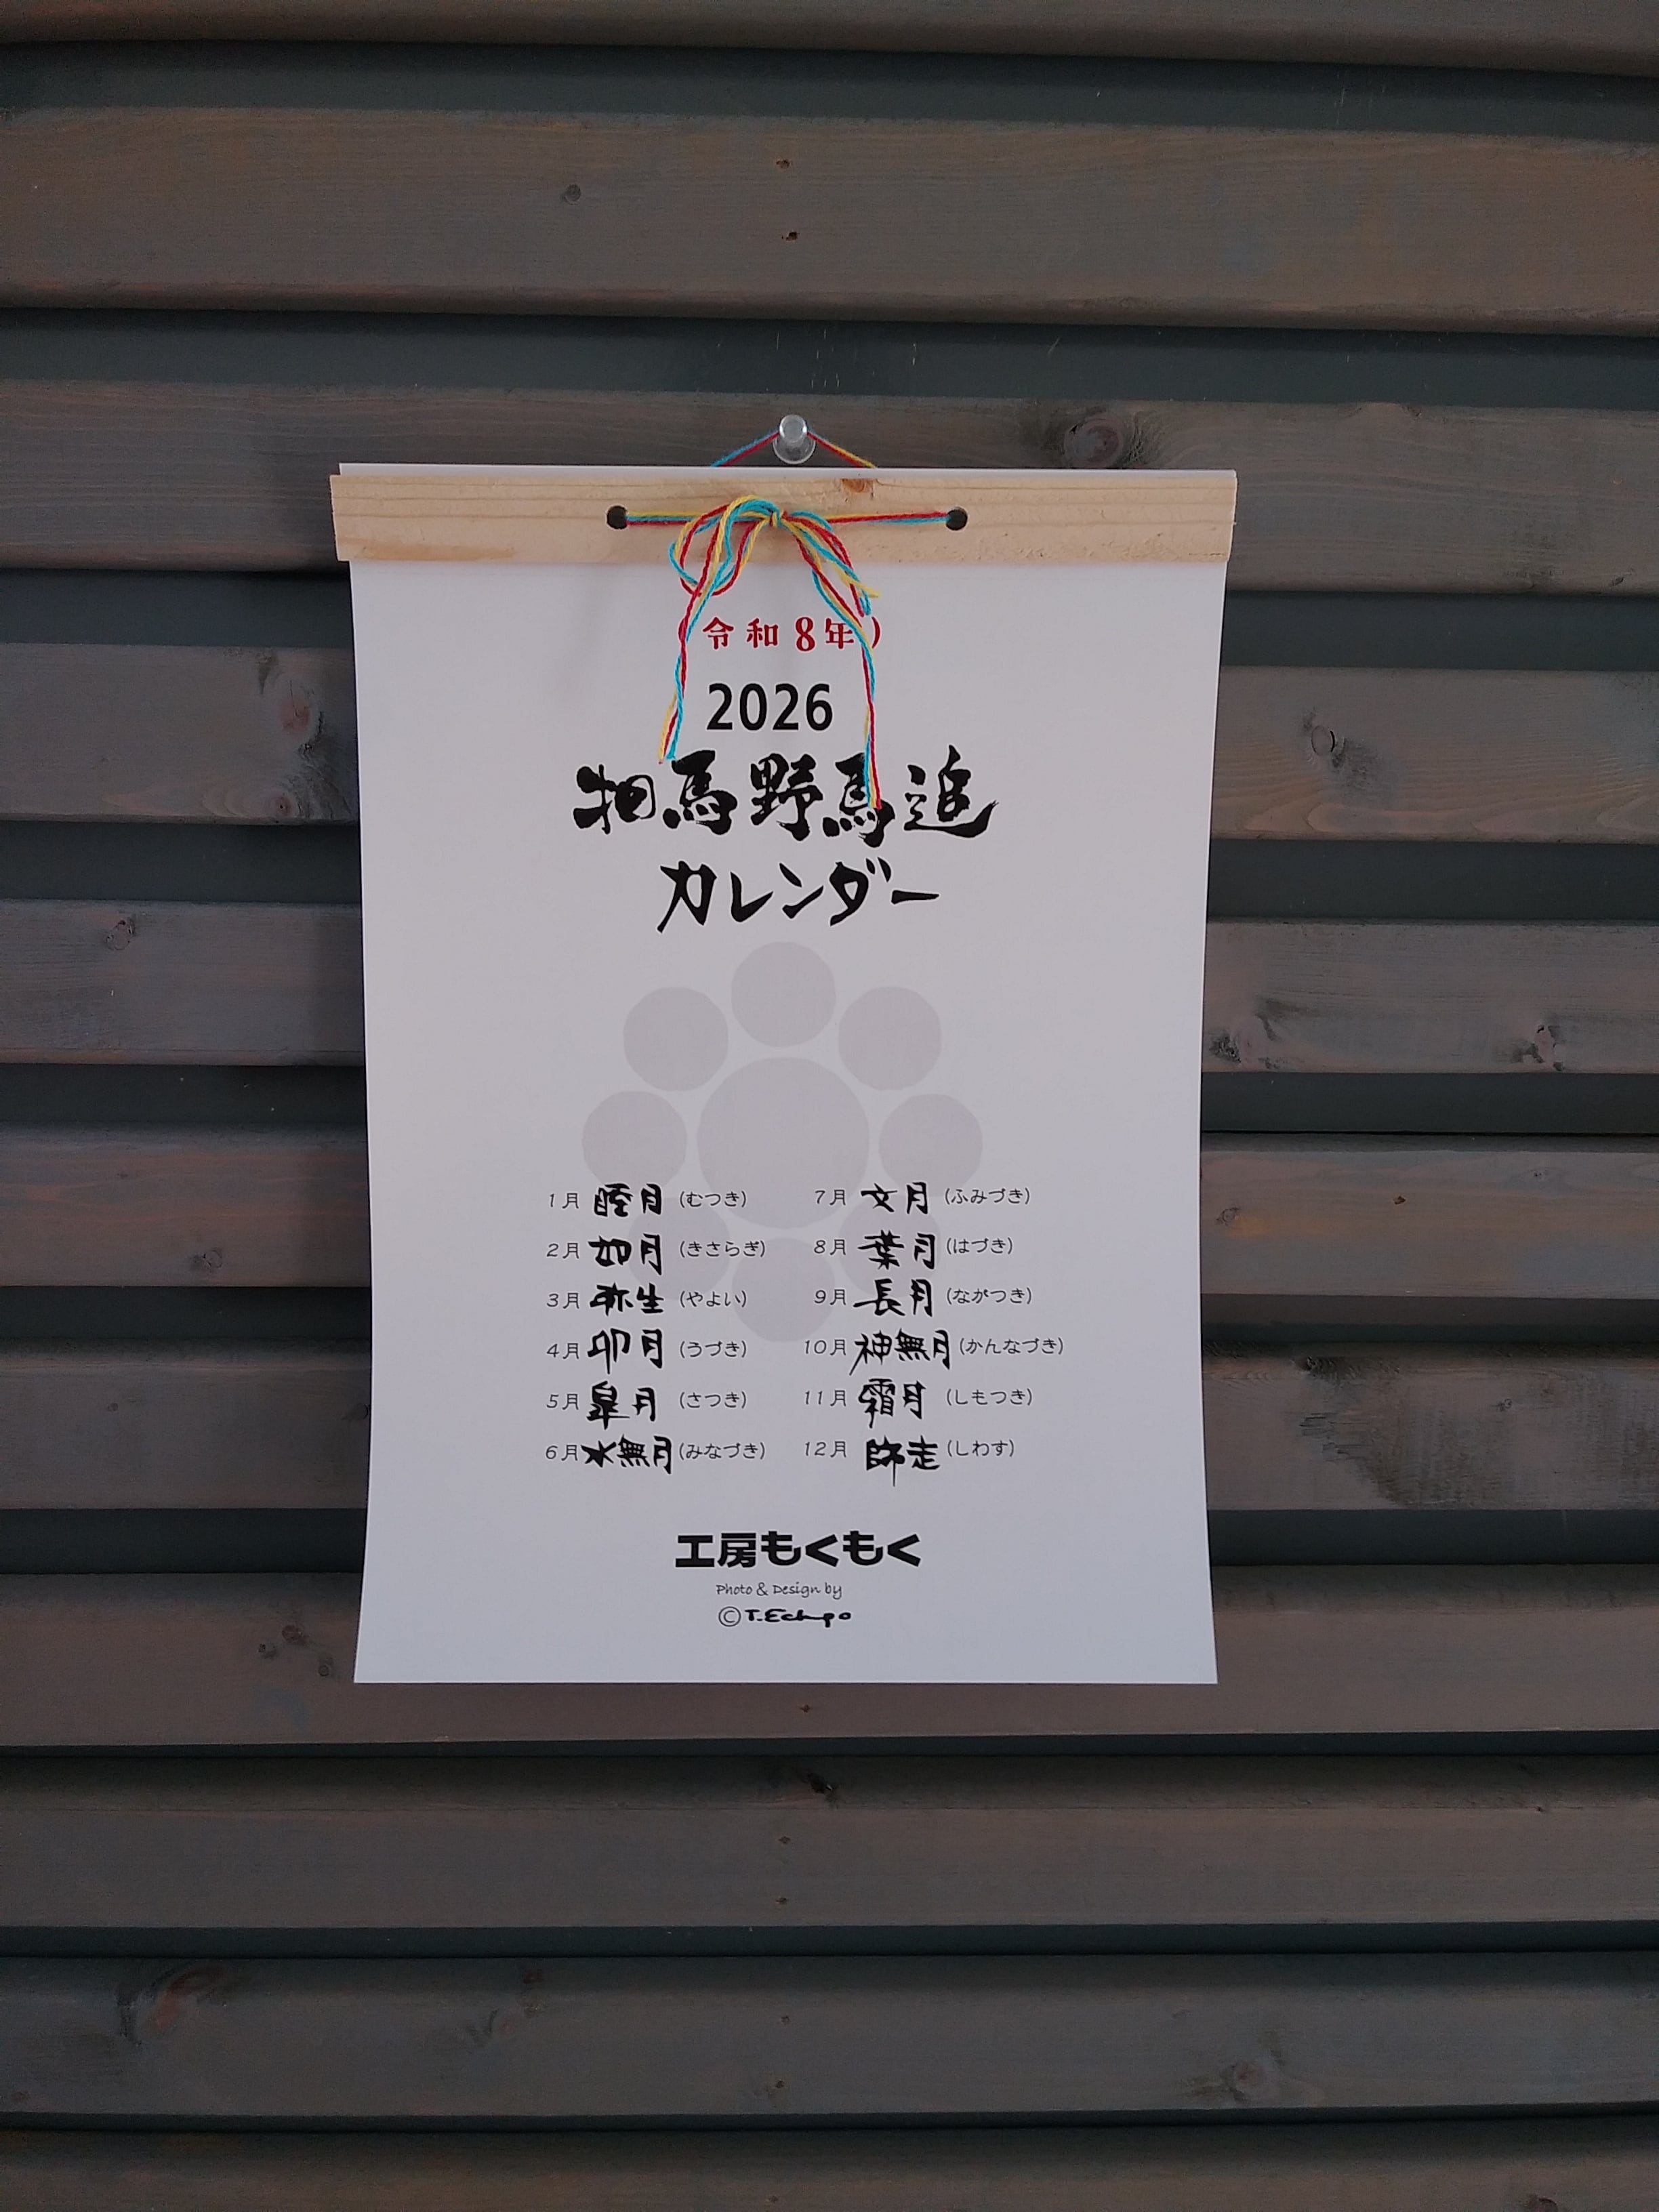 (令和8年)
2026
相馬野馬追
カレンダー
1月 睦月 (むつき)
2月 如月 (きさらぎ)
3月 弥生 (やよい)
4月 卯月 (うづき)
5月 皐月 (さつき)
6月 水無月 (みなづき)
7月 文月 (ふみづき)
8月 葉月 (はづき)
9月 長月 (ながつき)
10月 神無月 (かんなづき)
11月 霜月 (しもつき)
12月 師走 (しわす)
工房もくもく
Photo & Design by
©T.Echigo